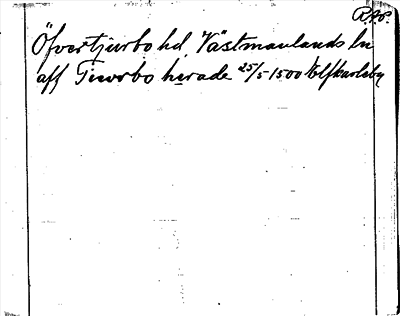 R.A.P.
Öfvertjurbo hd, Västmanlands ln
aff Tiwrbo hirade 25/5 1500 Elfkarleby